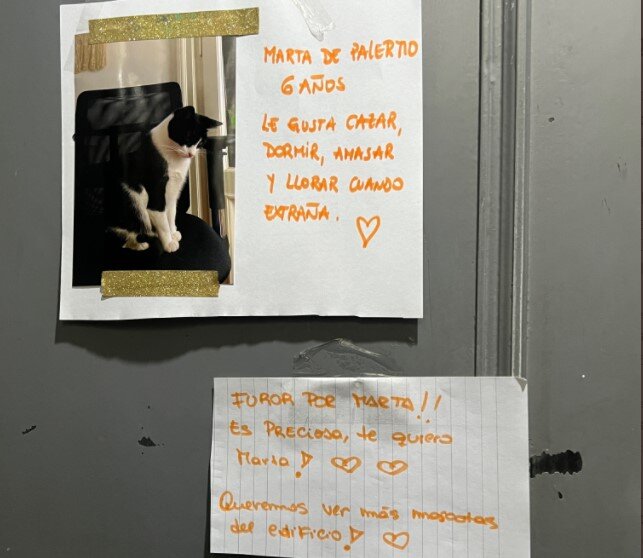 MARTA DE PALERMO
6 AÑOS
LE GUSTA CAZAR,
DORMIR, AMASAR
Y LLORAR CUANDO
EXTRAÑA.
FUROR POR MARTA!!
ES PRECIOSA, te quiero
Marta!
Queremos ver más mascotas
del edificio!